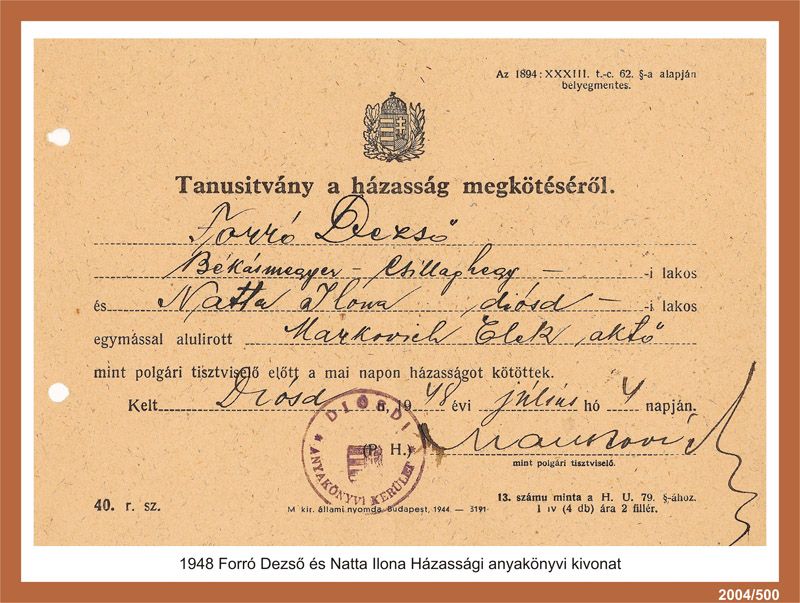 Az 1894:XXXIII. t.-c. 62. §-a alapján
bélyegmentes.
Tanusitvány a házasság megkötéséről.
Forró Dezső
Békásmegyer – Csillaghegy – -i lakos
és Natta Ilona diósd – -i lakos
egymással alulirott Markovich Elek aktő
mint polgári tisztviselő előtt a mai napon házasságot kötöttek.
Kelt Diósd n, 1948 évi július hó 4 napján.
DIÓSDI
ANYAKÖNYVI KERÜLET
(P. H.) Markovich
mint polgári tisztviselő.
40. r. sz.
M. kir. állami nyomda, Budapest, 1944 — 3191
13. számu minta a H. U. 79. §-ához.
1 iv (4 db) ára 2 fillér.
1948 Forró Dezső és Natta Ilona Házassági anyakönyvi kivonat
2004/500